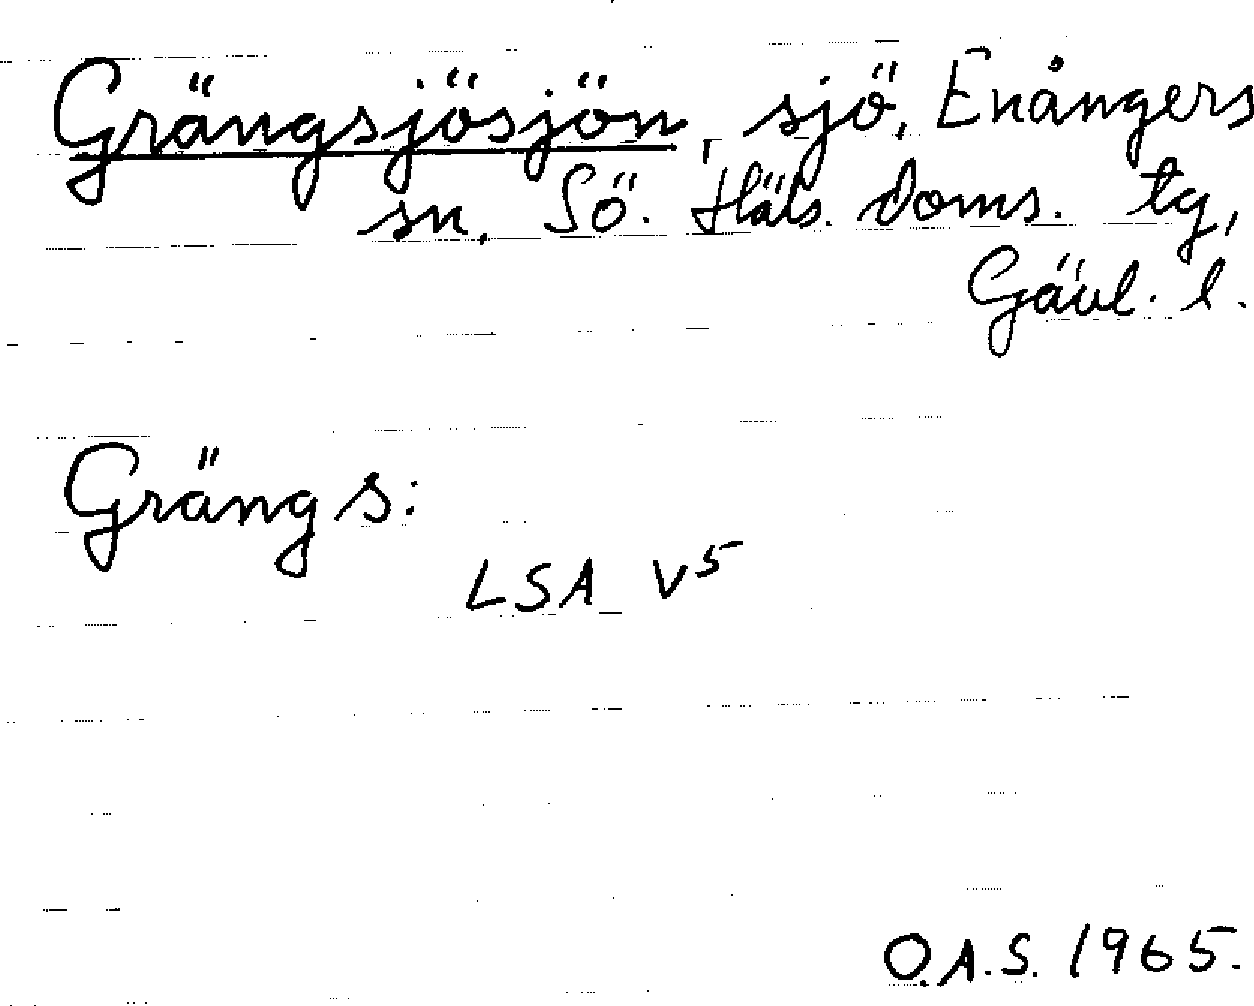 Grängsjösjön, sjö, Enångers
sn, Sö. Häls. doms. tg,
Gävl. l.
Grängs:
LSA V5
O.A.S. 1965.